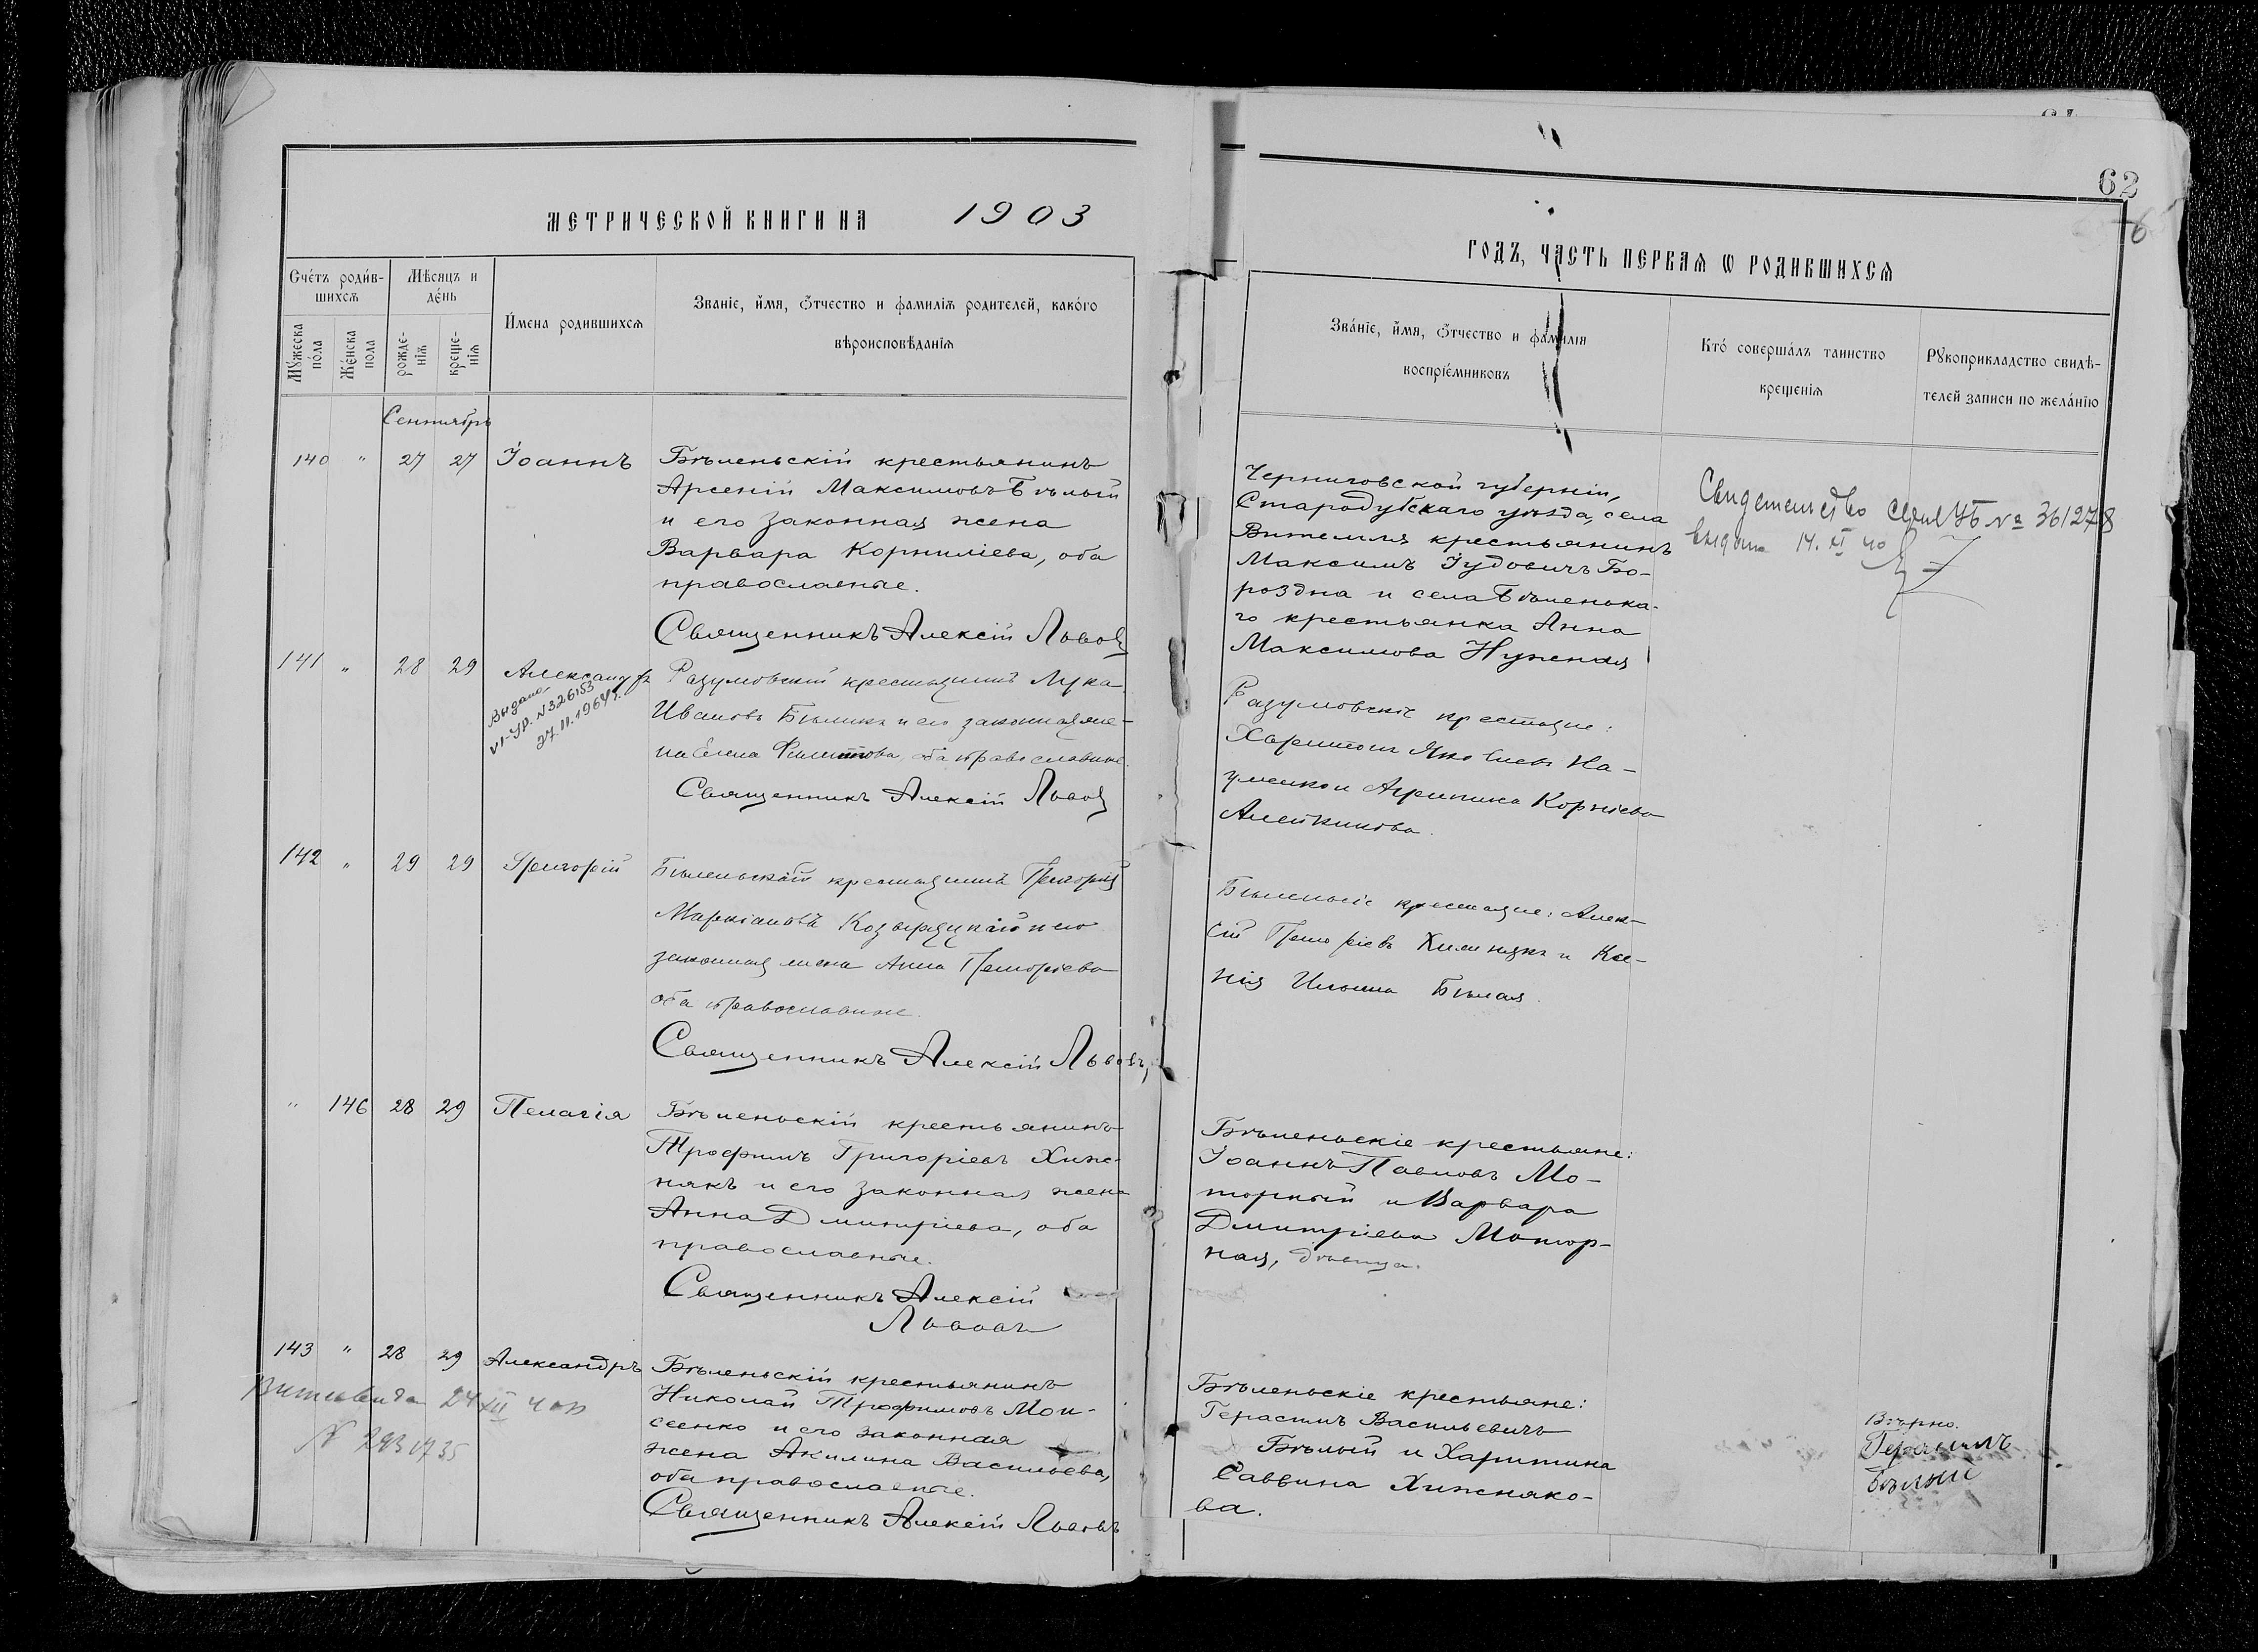 62
6
МЕТРИЧЕСКОЙ КНИГИ НА 1903
ГОДЪ, ЧАСТЬ ПЕРВАЯ Ѡ РОДИВШИХСЯ
Счétъ роди́в-
шихсѧ
Мѣсяцъ и
де́нь
Мꙋ́жеска
по́ла
Же́нска
пола
рожде-
нїѧ
креще-
нїѧ
И҆мена родившихсѧ
Званїе, и҆́мя, ѻ҆́тчество и фамилїѧ родителей, како́го
вѣроисповѣданїѧ
Зва́нїе, и҆́мя, ѻ҆́тчество и фами́лїя
воспрїе́мниковъ
Кто́ соверша́лъ таинство
крещенїѧ
Рꙋкоприкладство свидѣ-
телей записи по жела́нїю
Сентябрь
140 " 27 27 Іоаннъ
Бѣленьскій крестьянинъ
Арсеній Максимовъ Бѣлый
и его законная жена
Варвара Корниліева, оба
православные.
Священникъ Алексій Львовъ
Черниговской губерніи,
Стародубскаго уѣзда, села
Вителмля крестьянинъ
Максимъ Іудовичъ Бо-
роздна и села Бѣленька-
го крестьянка Анна
Максимова Нужная
Свидетельство № 361278
14. XI 40
141 " 28 29 Александръ
Выдано
VI-УР. N 326153
27.11.1964г.
Разумовскій крестьянинъ Лука
Ивановъ Бѣликъ и его законная же-
на Елена Филиппова, оба православные.
Священникъ Алексій Львовъ
Разумовскіе крестьяне:
Харитонъ Яковлевъ На-
уменко и Агрипина Корніева
Алейникова.
142 " 29 29 Григорій
Бѣленьскій крестьянинъ Григорій
Маркіановъ Козырицкій и его
законная жена Анна Григоріева
оба православные.
Священникъ Алексій Львовъ,
Бѣленьскіе крестьяне: Алек-
сій Григоріевъ Хижнякъ и Ксе-
нія Ильина Бѣлая.
" 146 28 29 Пелагія
Бѣленьскій крестьянинъ
Трофимъ Григоріевъ Хиж-
някъ и его законная жена
Анна Дмитріева, оба
православные.
Священникъ Алексій
Львовъ
Бѣленьскіе крестьяне:
Іоаннъ Павловъ Мо-
торный и Варвара
Дмитріева Мотор-
ная, дѣвица.
143 " 28 29 Александръ
24 XII 40
N 2931735
Бѣленьскій крестьянинъ
Николай Трофимовъ Мои-
сеенко и его законная
жена Акилина Васильева,
оба православные.
Священникъ Алексій Львовъ
Бѣленьскіе крестьяне:
Герасимъ Васильевичъ
Бѣлый и Харитина
Саввина Хижняко-
ва.
Вѣрно.
Герасимъ
Бѣлый